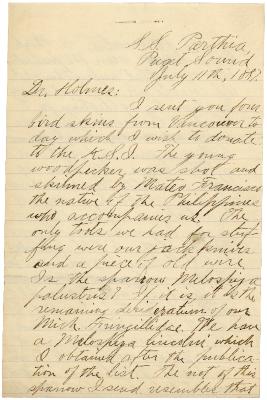 S.S. Parthia,
Puget Sound
July 11th, 1887.
Dr. Holmes:
I sent you four
bird skins from Vancouver to
day which I wish to donate
to the K.S.I. The young
woodpecker was shot and
skinned by Mateo Francisco
the native of the Philippines
who accompanies us. The
only tools we had for stuf
fing were our jack knives
and a piece of old wire.
Is the sparrow Melospiza
palustris? If it is it is the
remaining desideratum of our
Mich. Fringillidae. We have
a Melospiza lincolni which
I obtained after the publica
tion of the list. The no. of this
sparrow I send resembles that